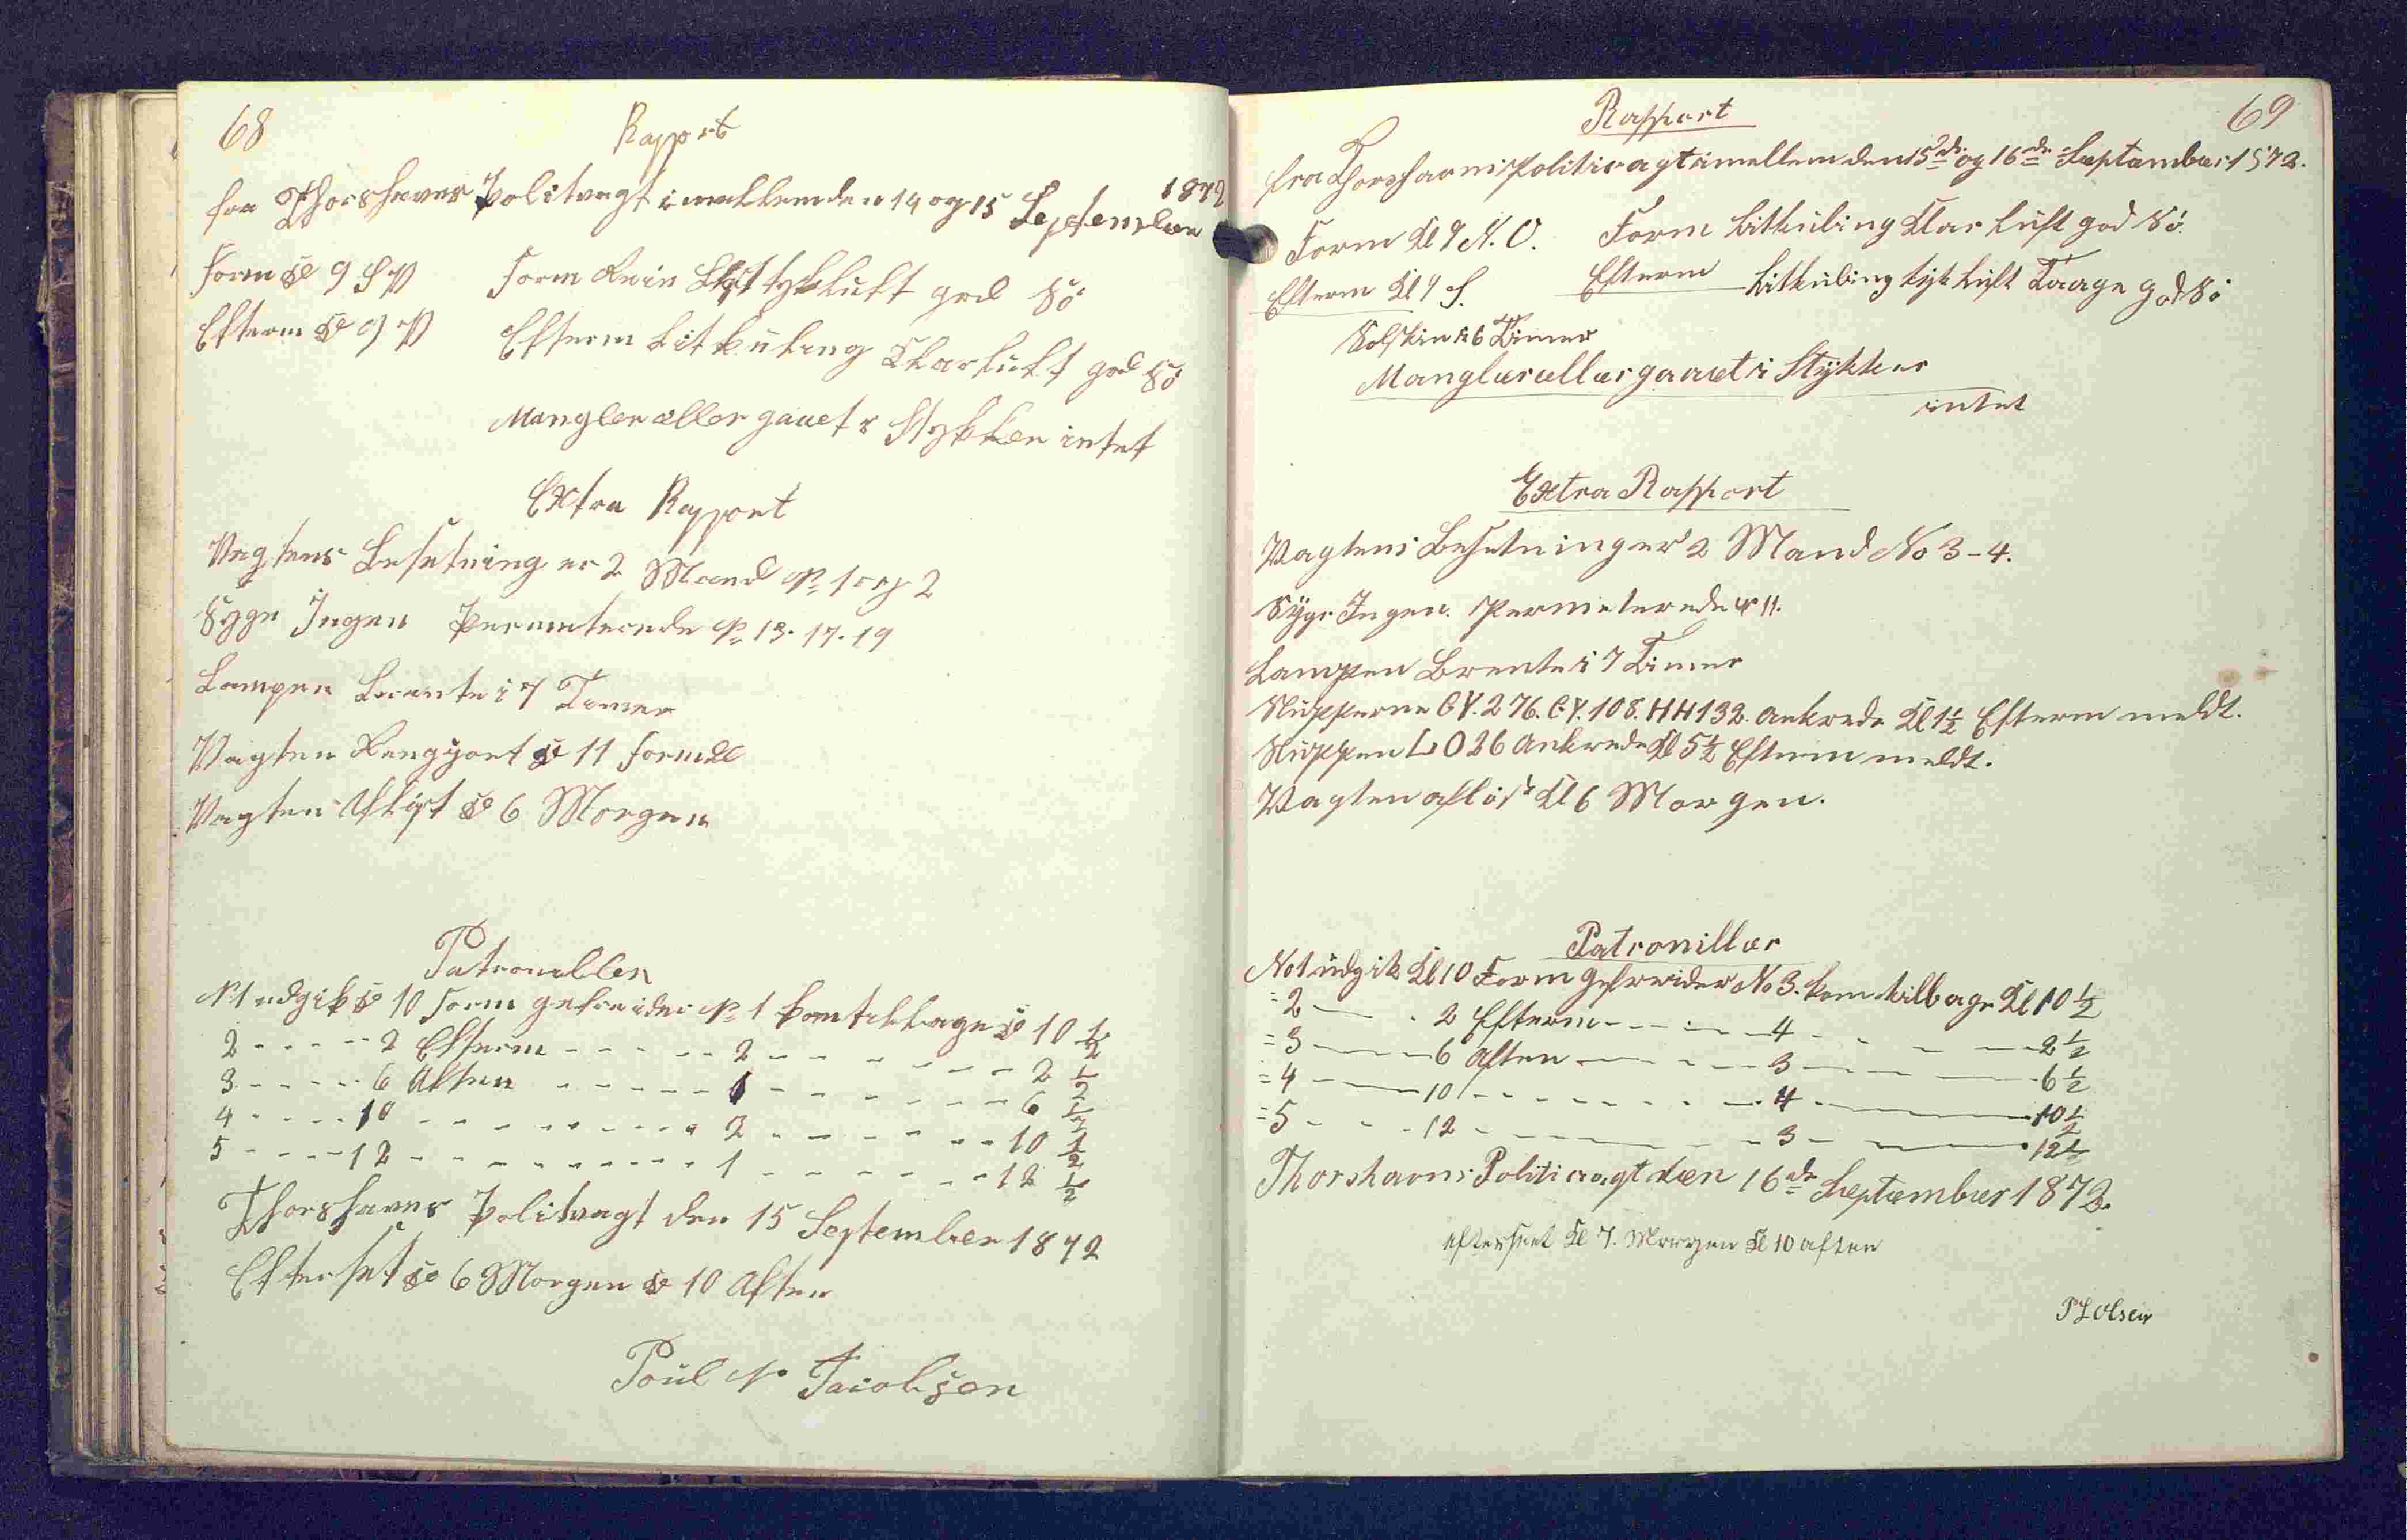 68
Rapport
fra Thorshavns Politvagt imellem den 14 og 15 September 1872
Form Kl 9 S V Form Rein tyk luft god Sö
Efterm Kl 9 V Efterm Litkuling Klar luft god Sö
Mangler eller gaaet i Stykker intet
Extra Rapport
Vagtens Besetning er 2 Mand No 1 og 2
Syge Ingen Permeterede No 13. 17. 19
Lampen Brente i 7 Timer
Vagten Rengjort Kl 11 formdl
Vagten Kl 6 Morgen
Patrouiller
No 1 udgik Kl 10 Form gefreider No 1 kom tilbage Kl 10 1/2
2 - - - - - 2 Efterm - - - - - 2 - - - - - - - 2 1/2
3 - - - - - 6 Aften - - - - - 1 - - - - - - - 6 1/2
4 - - - - 10 - - - - - - - - 2 - - - - - - 10 1/2
5 - - - - 12 - - - - - - - - 1 - - - - - - 12 1/2
Thorshavns Politvagt den 15 September 1872
Efterset Kl 6 Morgen Kl 10 Aften
Poul N Jacobsen
Rapport
69
fra Thorshavns Politivagt imellem den 15de og 16de September 1872.
Form Kl 9 N. O. Form Litkuling Klar Luft god Sö.
Efterm Kl 9 S. Efterm Litkuling tyk Luft Taage god Sö
Solskin i 6 Timer
Mangler eller gaaet i Stykker
intet
Extra Rapport
Vagtens Besetning er 2 Mand No 3-4.
Syge Ingen. Permeterede No 11.
Lampen Brente i 7 Timer
Slupperne GY. 276. GY. 108. HH 132. ankrede Kl 1 1/2 Efterm meldt.
Sluppen LO 26 ankrede Kl 5 1/2 Efterm meldt.
Vagten aflöst Kl 6 Morgen.
Patrouiller
No 1 udgik Kl 10 Form Gefreider No 3. kom tilbage Kl 10 1/2
= 2 - - 2 Efterm - - - - 4 - - - - - 2 1/2
= 3 - - - 6 Aften - - - - 3 - - - - - 6 1/2
= 4 - - - 10 - - - - - - 4 - - - - 10 1/2
= 5 - - - 12 - - - - - - 3 - - - - 12 1/2
Thorshavns Politivagt den 16de September 1872.
efterseet Kl 7. Morgen Kl 10 aften
P L Olsen